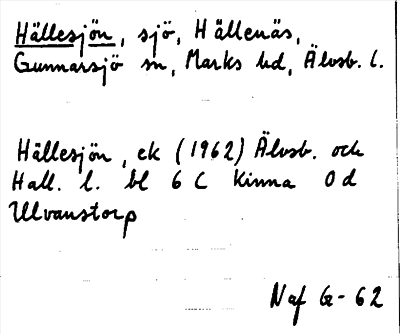 Hällesjön, sjö, Hällenäs,
Gunnarsjö sn, Marks hd, Älvsb. l.
Hällesjön, ek (1962) Älvsb. och
Hall. l. bl 6 C Kinna 0 d
Ulvanstorp
Naf G-62